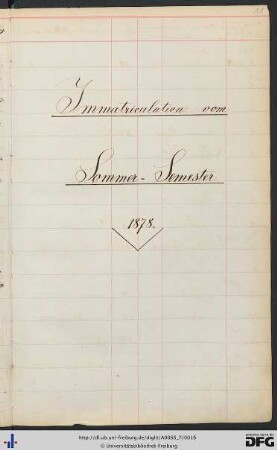 Immatriculation vom
Sommer-Semester
1878.
http://dl.ub.uni-freiburg.de/diglit/A0055_7/0016
© Universitätsbibliothek Freiburg
DFG